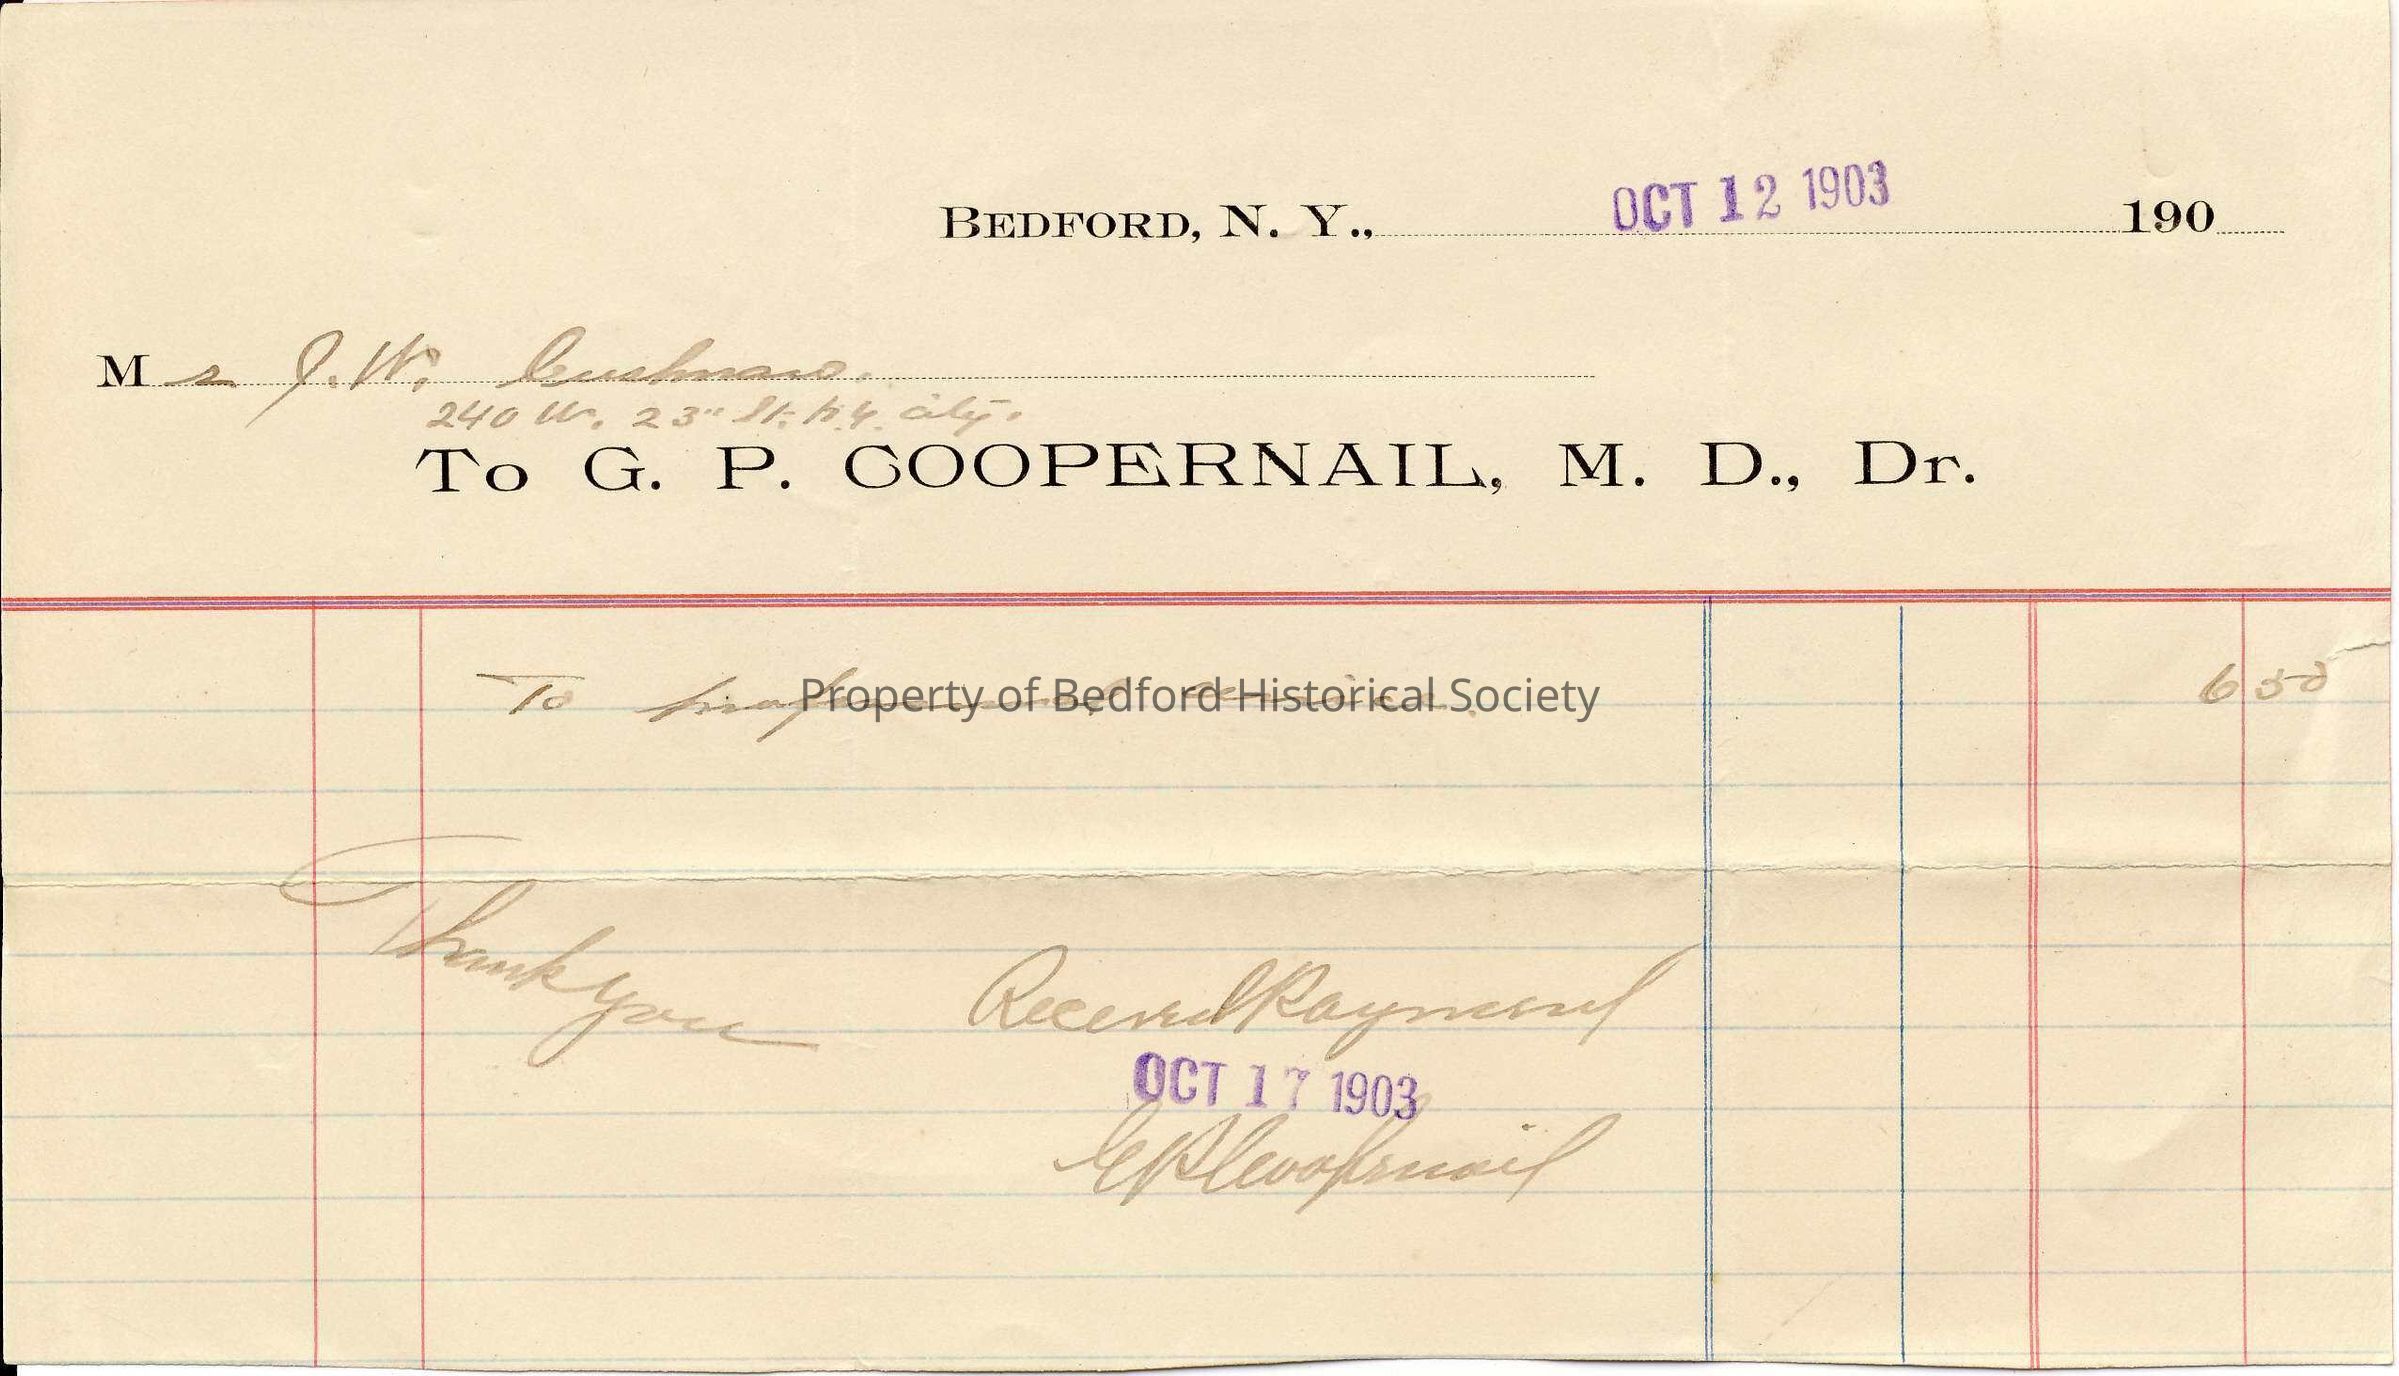 BEDFORD, N. Y., OCT 12 1903 190
Mr J. W. Cushman.
240 W. 23" St. N.Y. City.
To G. P. COOPERNAIL, M. D., Dr.
To professional service. 6 50
Property of Bedford Historical Society
Thank
you
Received Payment
OCT 17 1903
G P Coopernail